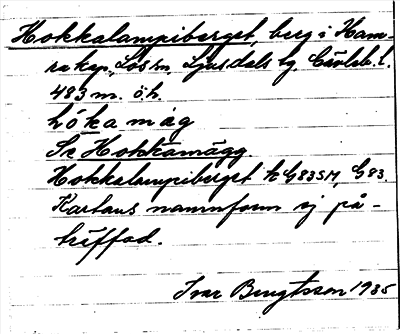 Hokkalampiberget, berg i Ham-
ra kp., Los sn, Ljusdals tg, Gävleb. l.
483 m. ö. h.
hókamäg
Se Hokkamägg
Hokkalampiberget k G83SM, G83.
Kartans namnform ej på-
träffad.
Ivar Bengtsson 1935